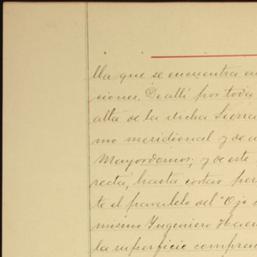 lla que se encuentra en
ciones. De allí por toda
alta de la dicha Sierra
mo meridional y de a
Mayordomo; y de este
recta, hasta cortar por
te el paralelo del "Ojo d
mismo Ingeniero
la superficie compren